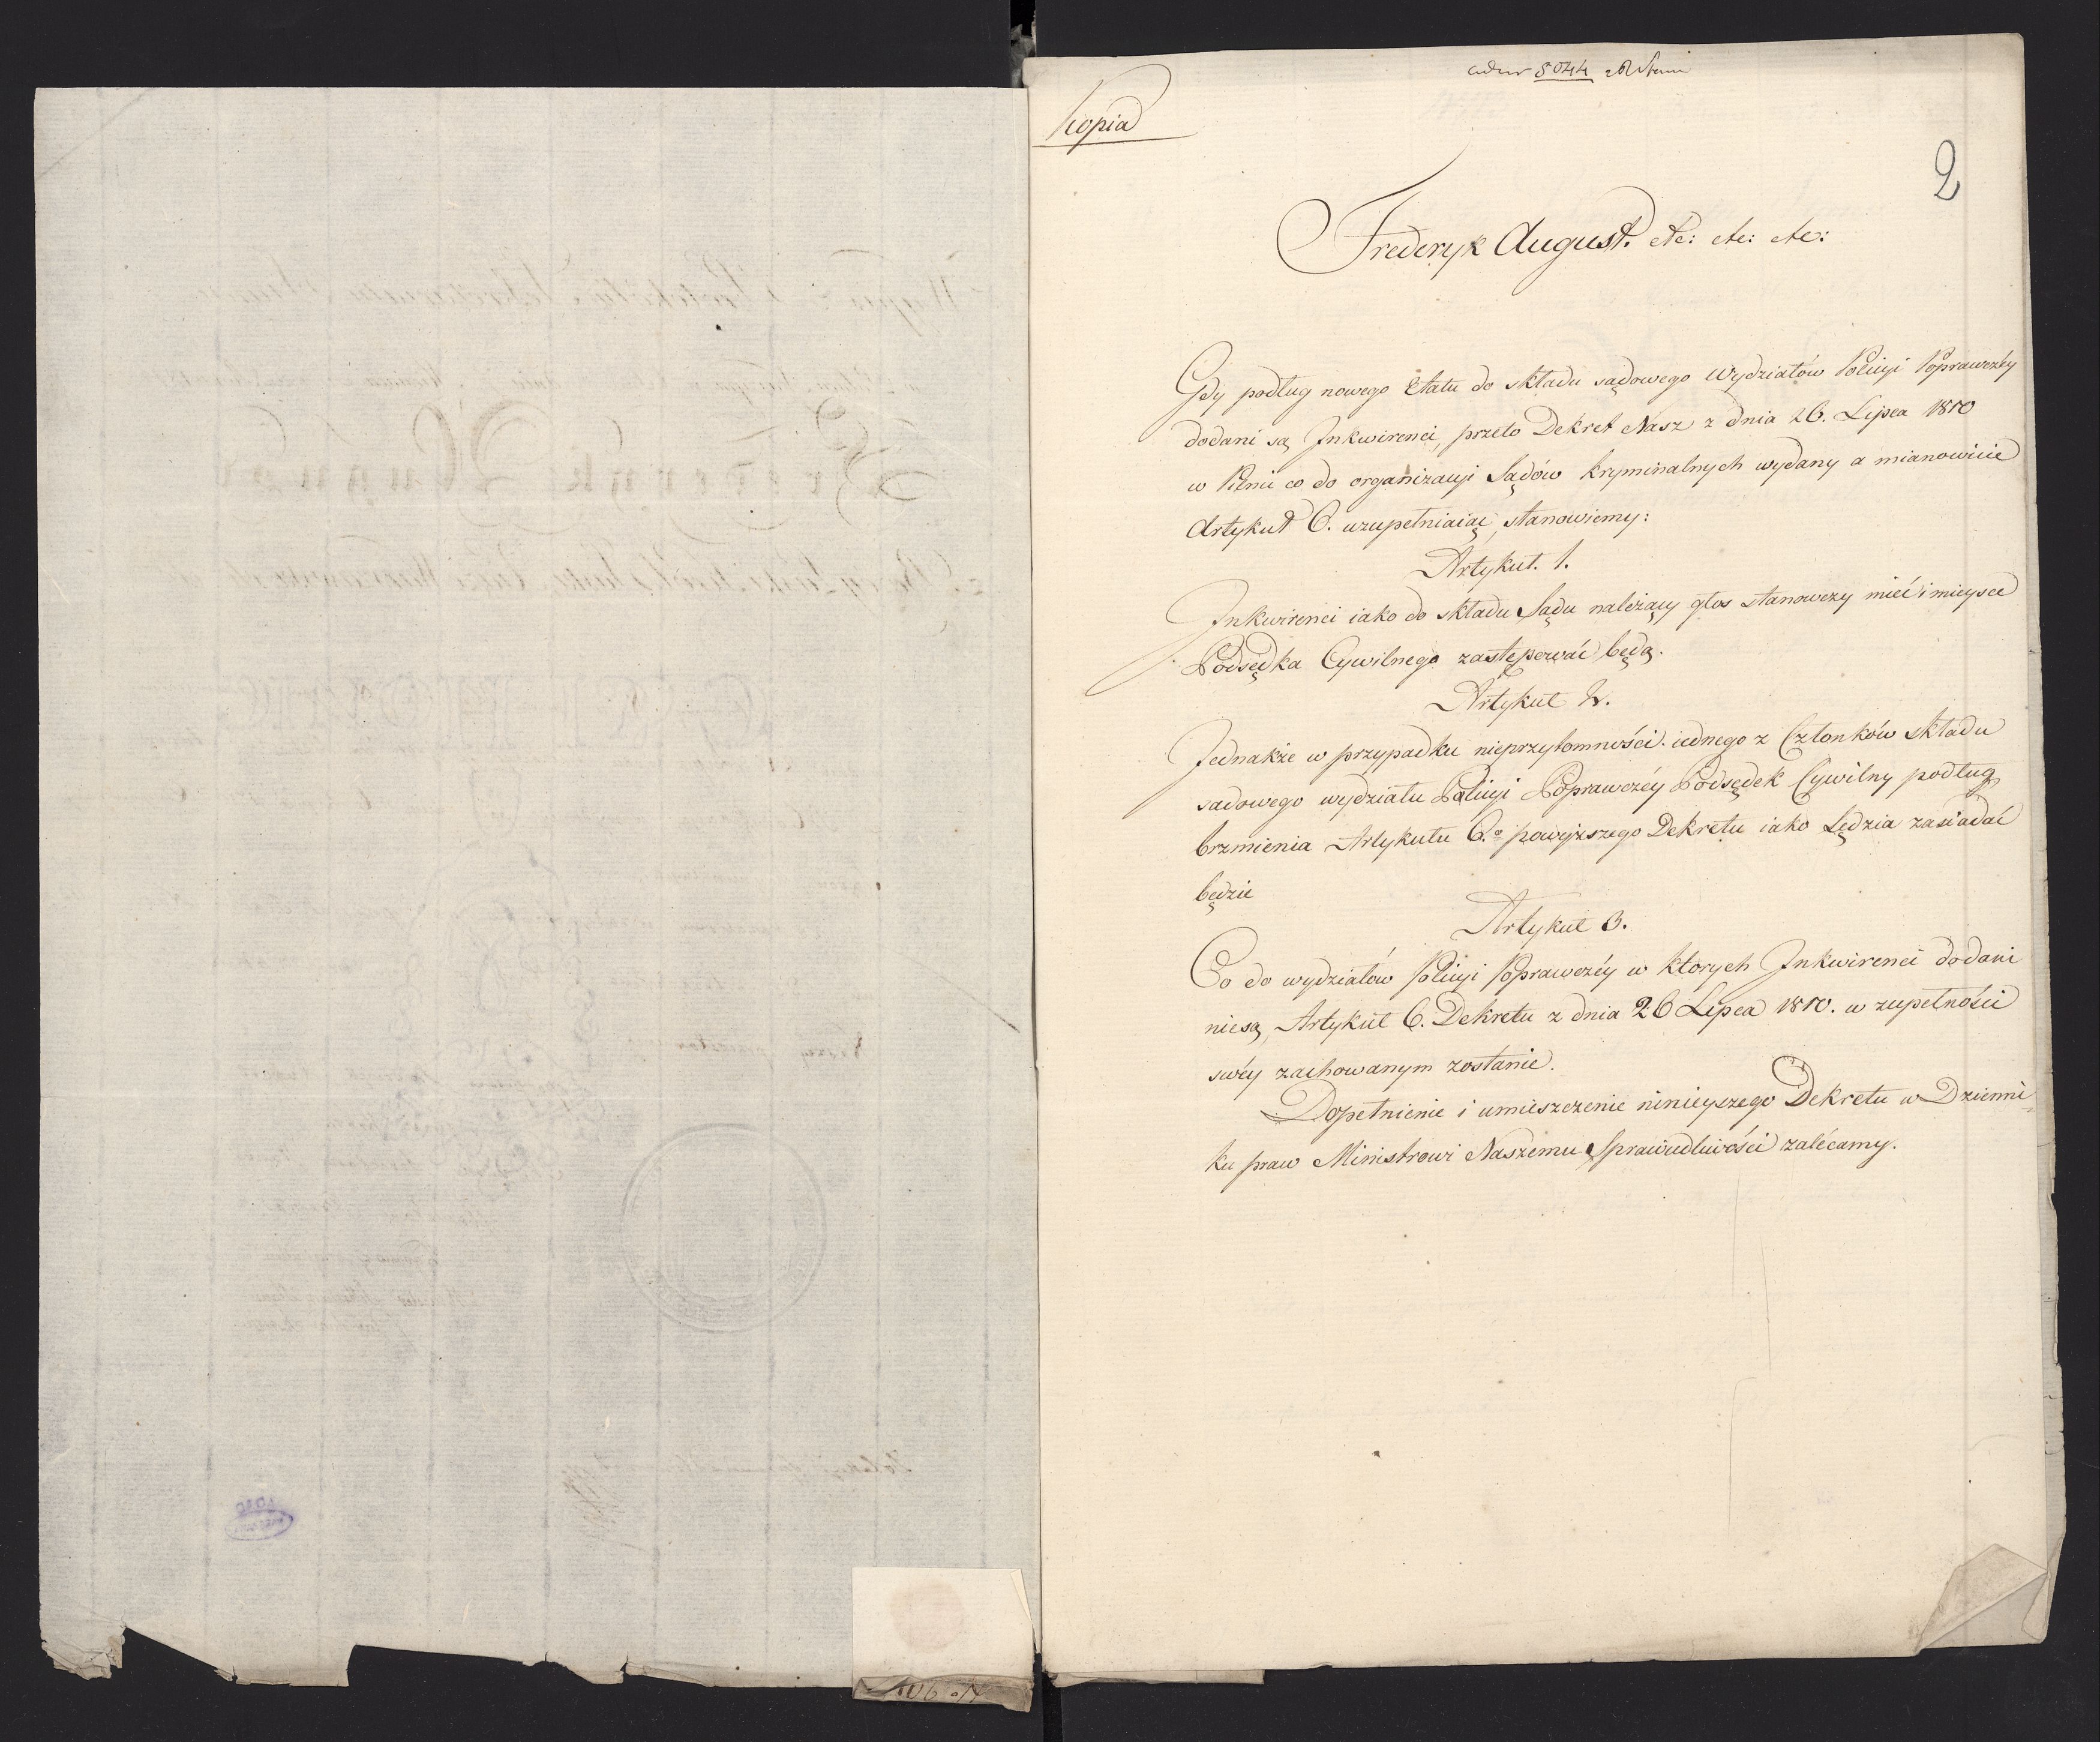 5044
Kopia
2
Frederyk August. etc: etc: etc:
Gdy podług nowego Etatu do składu sądowego Wydziałów Policyi Poprawczéy
dodani są Inkwirenci, przeto Dekret Nasz z dnia 26. Lipca 1810
w Pilnie co do organizacyi Sądów kryminalnych wydany a mianowicie
Artykuł 6. uzupełniaiąc, stanowiemy:
Artykuł. 1.
Inkwirenci iako do składu Sądu należący głos stanowczy mieć i mieysce
Podsędka Cywilnego zastępować będą.
Artykuł 2.
Jednakże w przypadku nieprzytomności iednego z Członków składu
sadowego wydziału Policyi Poprawczéy Podsędek Cywilny podług
brzmienia Artykułu 6.º powyższego Dekretu iako Sędzia zasiadać
będzie
Artykuł 3.
Co do wydziałów Policyi Poprawczéy w ktorych Inkwirenci dodani
niesą, Artykuł 6. Dekretu z dnia 26 Lipca 1810. w zupełności
swéy zachowanym zostanie.
Dopełnienie i umieszczenie ninieyszego Dekretu w Dzienni-
ku praw Ministrowi Naszemu Sprawiedliwości zalécamy.